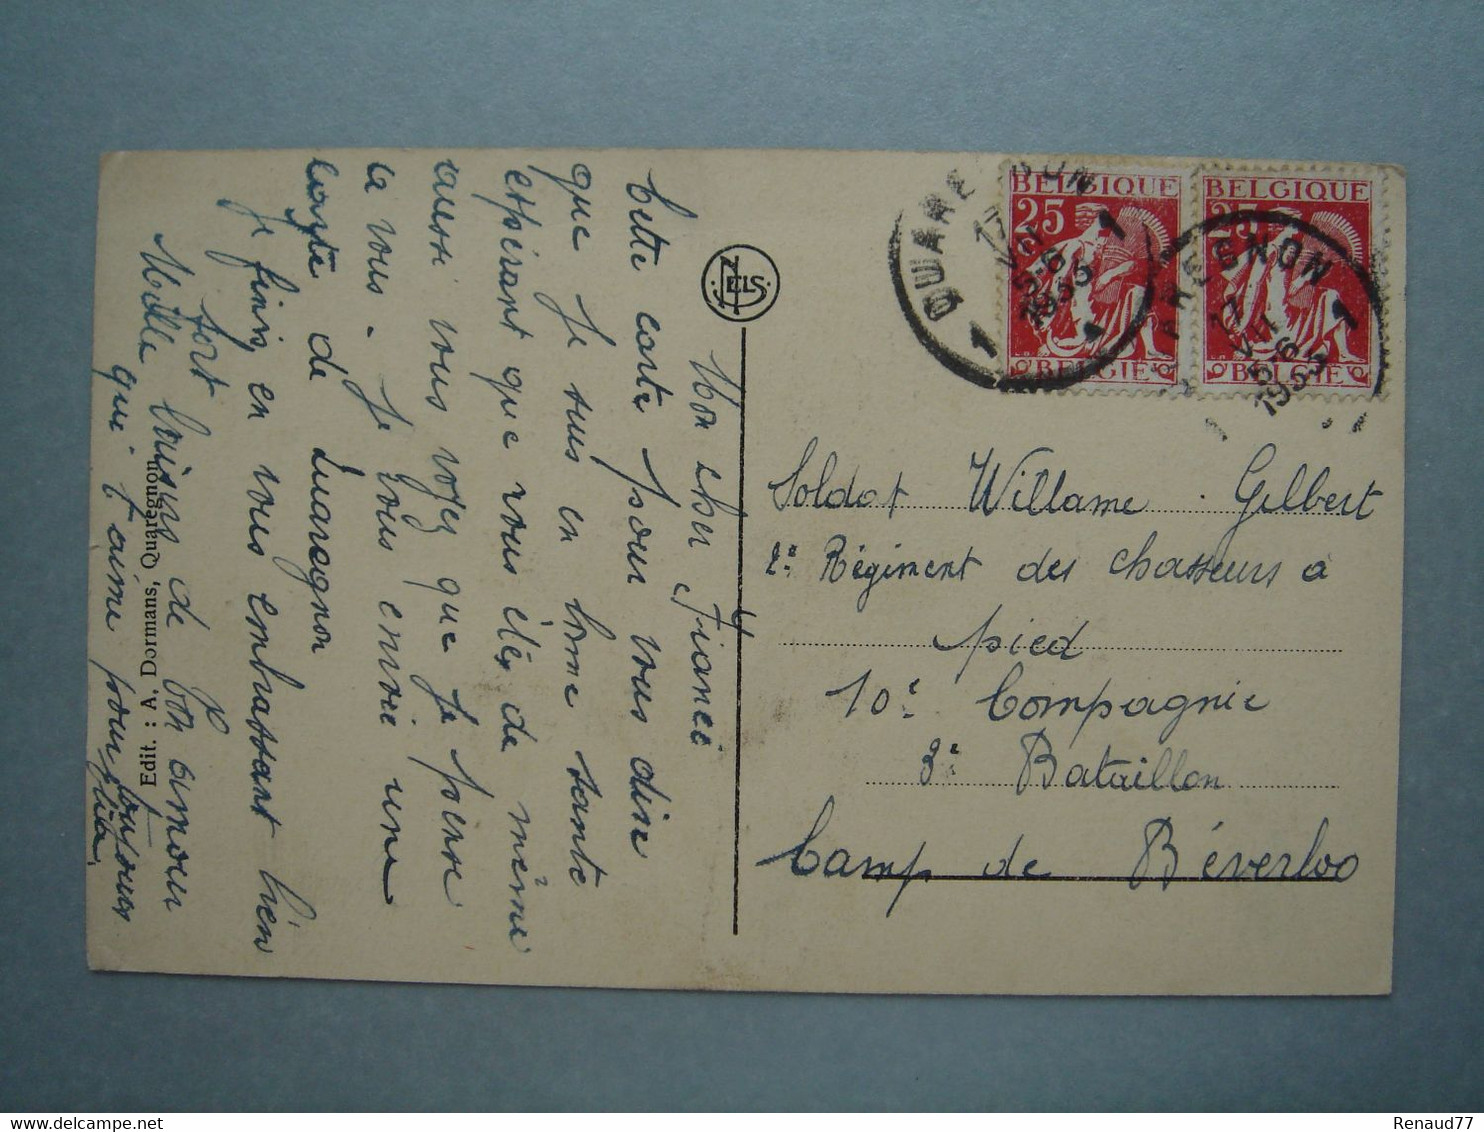 Mon cher Fiancé
Cette carte pour vous dire
que Je suis en bonne sante
espérant que vous étéz de même
aussi vous voyez que Je pense
a vous. Je vous envoie une
carte de Quaregnon
Je finis en vous embrassant bien
fort
Mille baisers de ton amour
qui t'aime pour toujours
Edit. : A. Dormans, Quaregnon
NELS
BELGIQUE
25
BELGIE
BELGIQUE
25
BELGIE
QUAREGNON
1 1
17
VII
5-6
1935
QUAREGNON
1
17
VII
5-6
1935
Soldat Willame Gilbert
2e Régiment des chasseurs a
pied
10e Compagnie
3e Bataillon
Camp de Béverloo
Renaud77